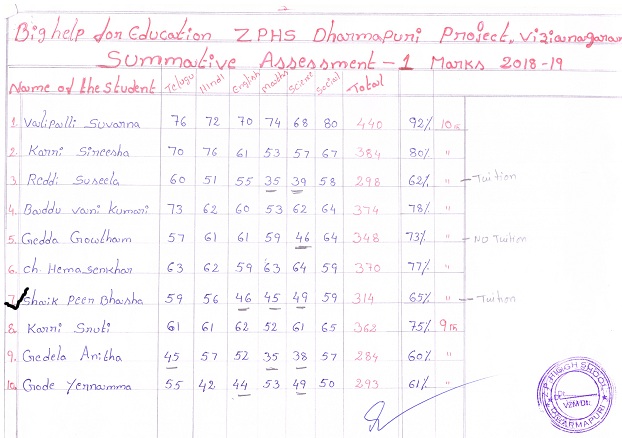 Bighelp for Education ZPHS Dharmapuri Project, Vizianagaram
Summative Assessment - 1 Marks 2018-19
Name of the Student Telugu Hindi English Maths Scene Social Total
1. Valipalli Suvarna 76 72 70 74 68 80 440 92% 10th
2. Karni Sireesha 70 76 61 53 57 67 384 80% "
3. Reddi Suseela 60 51 55 35 39 58 298 62% " - Tuition
4. Boddu vani Kumari 73 62 60 53 62 64 374 78% "
5. Gedda Gowtham 57 61 61 59 46 64 348 73% " - NO Tuition
6. Ch. Hemasenkhar 63 62 59 63 64 59 370 77% "
7. Shaik Peer Bhasha 59 56 46 45 49 59 314 65% " - Tuition
8. Karni Sruti 61 61 62 52 61 65 362 75% 9th
9. Gedela Anitha 45 57 52 35 38 57 284 60% "
10. Gode Yernamma 55 42 44 53 49 50 293 61% "
Z.P. HIGH SHOOL
VZM Dt.
DHARMAPURI